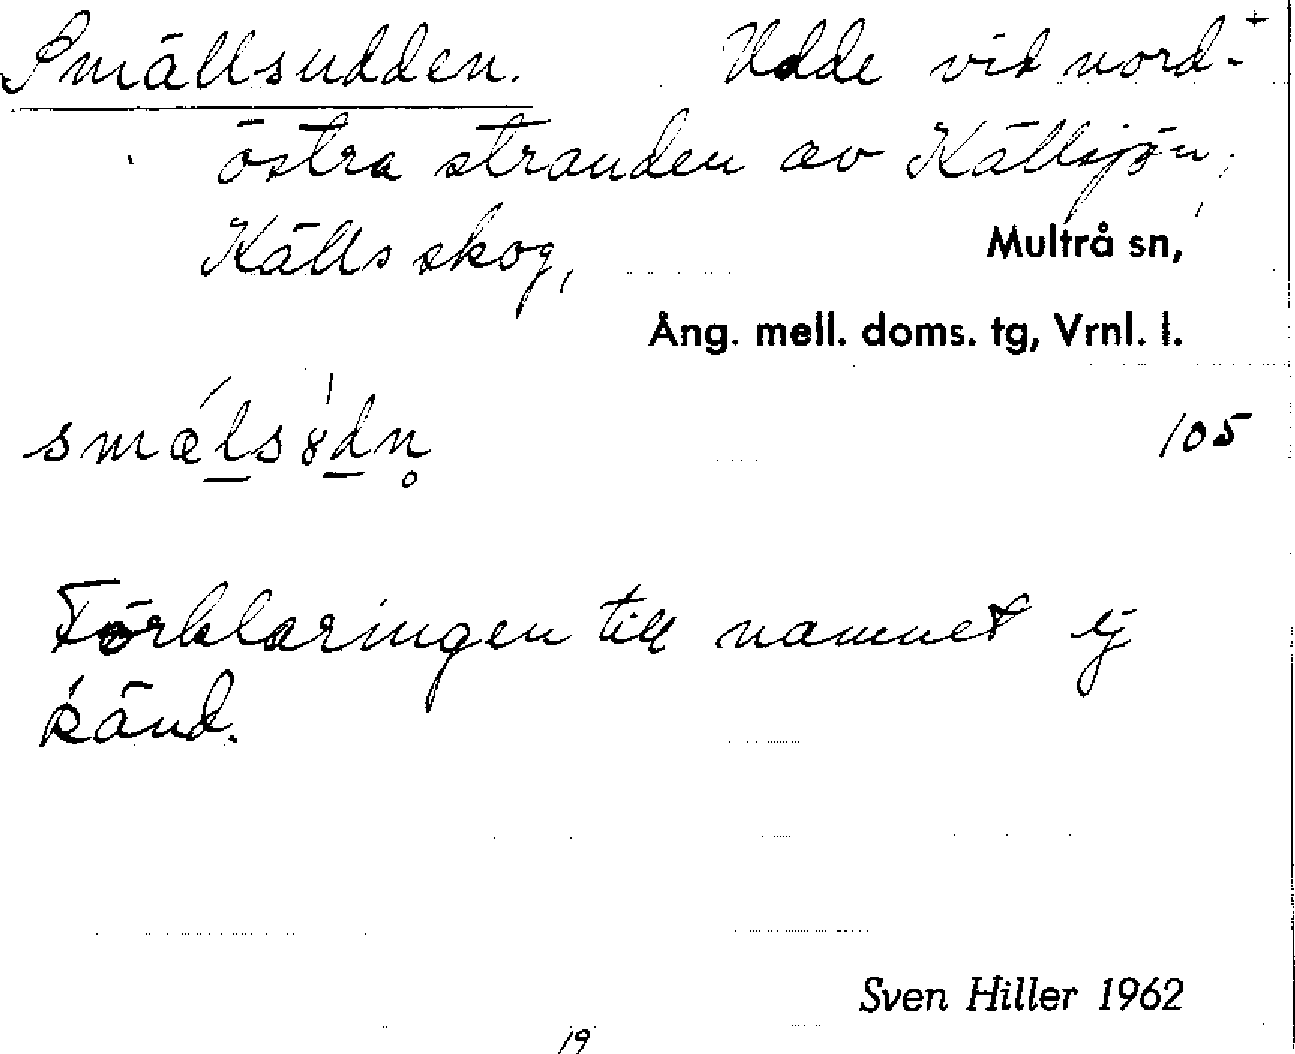 Smällsudden. Udde vid nord- +
östra stranden av Källsjön,
Källs skog, Multrå sn,
Ång. mell. doms. tg, Vrnl. l.
smǽlsꞌ8dn̥ 105
Förklaringen till namnet ej
känd.
Sven Hiller 1962
19